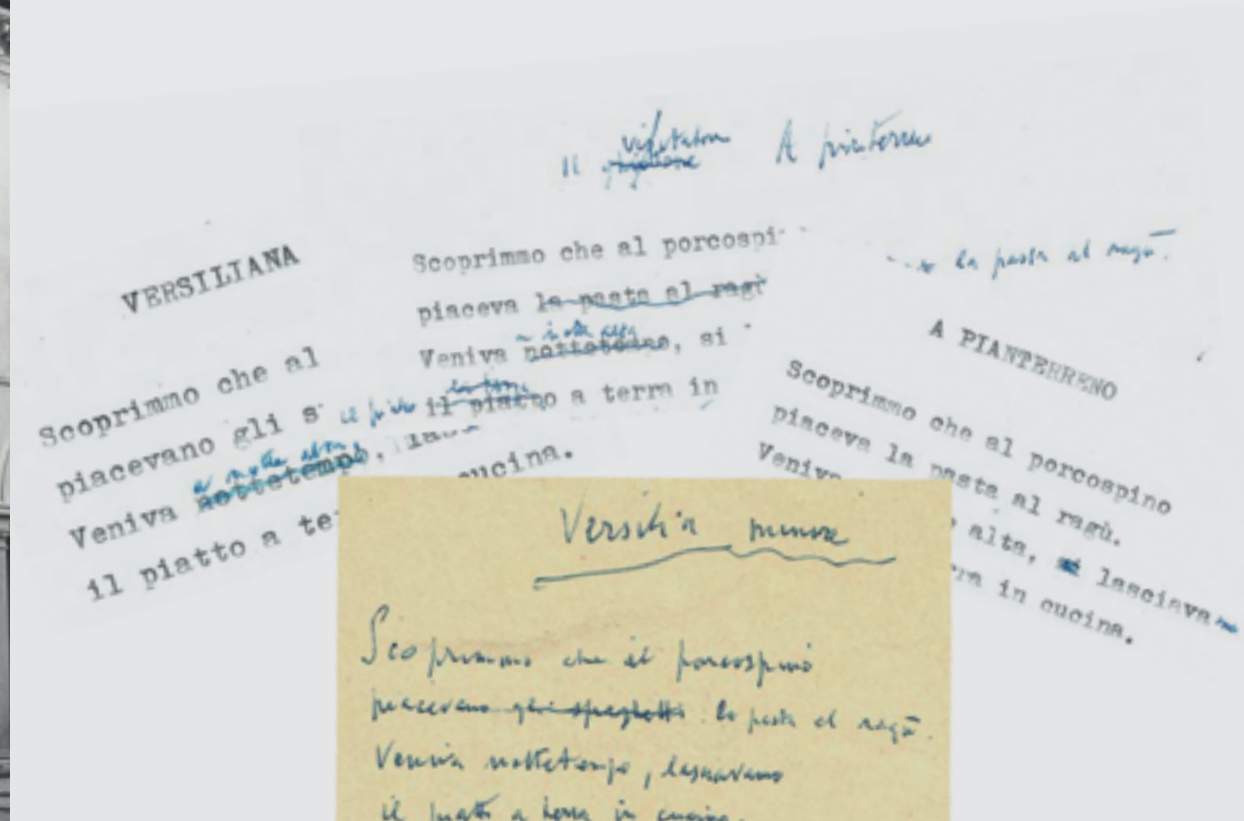 Il visitatore A pianterreno
VERSILIANA
Scoprimmo che al
piacevano gli s
Veniva nottetempo,
il piatto a te
Scoprimmo che al porcospi
piaceva la pasta al ragù
Veniva nottetempo, si
il piatto a terra in
cucina.
la pasta al ragù.
A PIANTERRENO
Scoprimmo che al porcospino
piaceva la pasta al ragù.
Veniva
alta, lasciava
rra in cucina.
Versilia minore
Scoprimmo che al porcospino
piacevano gli spaghetti la pasta al ragù.
Veniva nottetempo, lasciavamo
il piatto a terra in cucina.